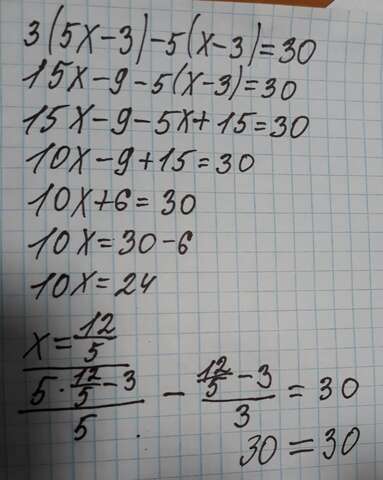 3(5x-3)-5(x-3)=30
15x-9-5(x-3)=30
15x-9-5x+15=30
10x-9+15=30
10x+6=30
10x=30-6
10x=24
x=12/5
(5·12/5-3)/5 - (12/5-3)/3 = 30
30=30